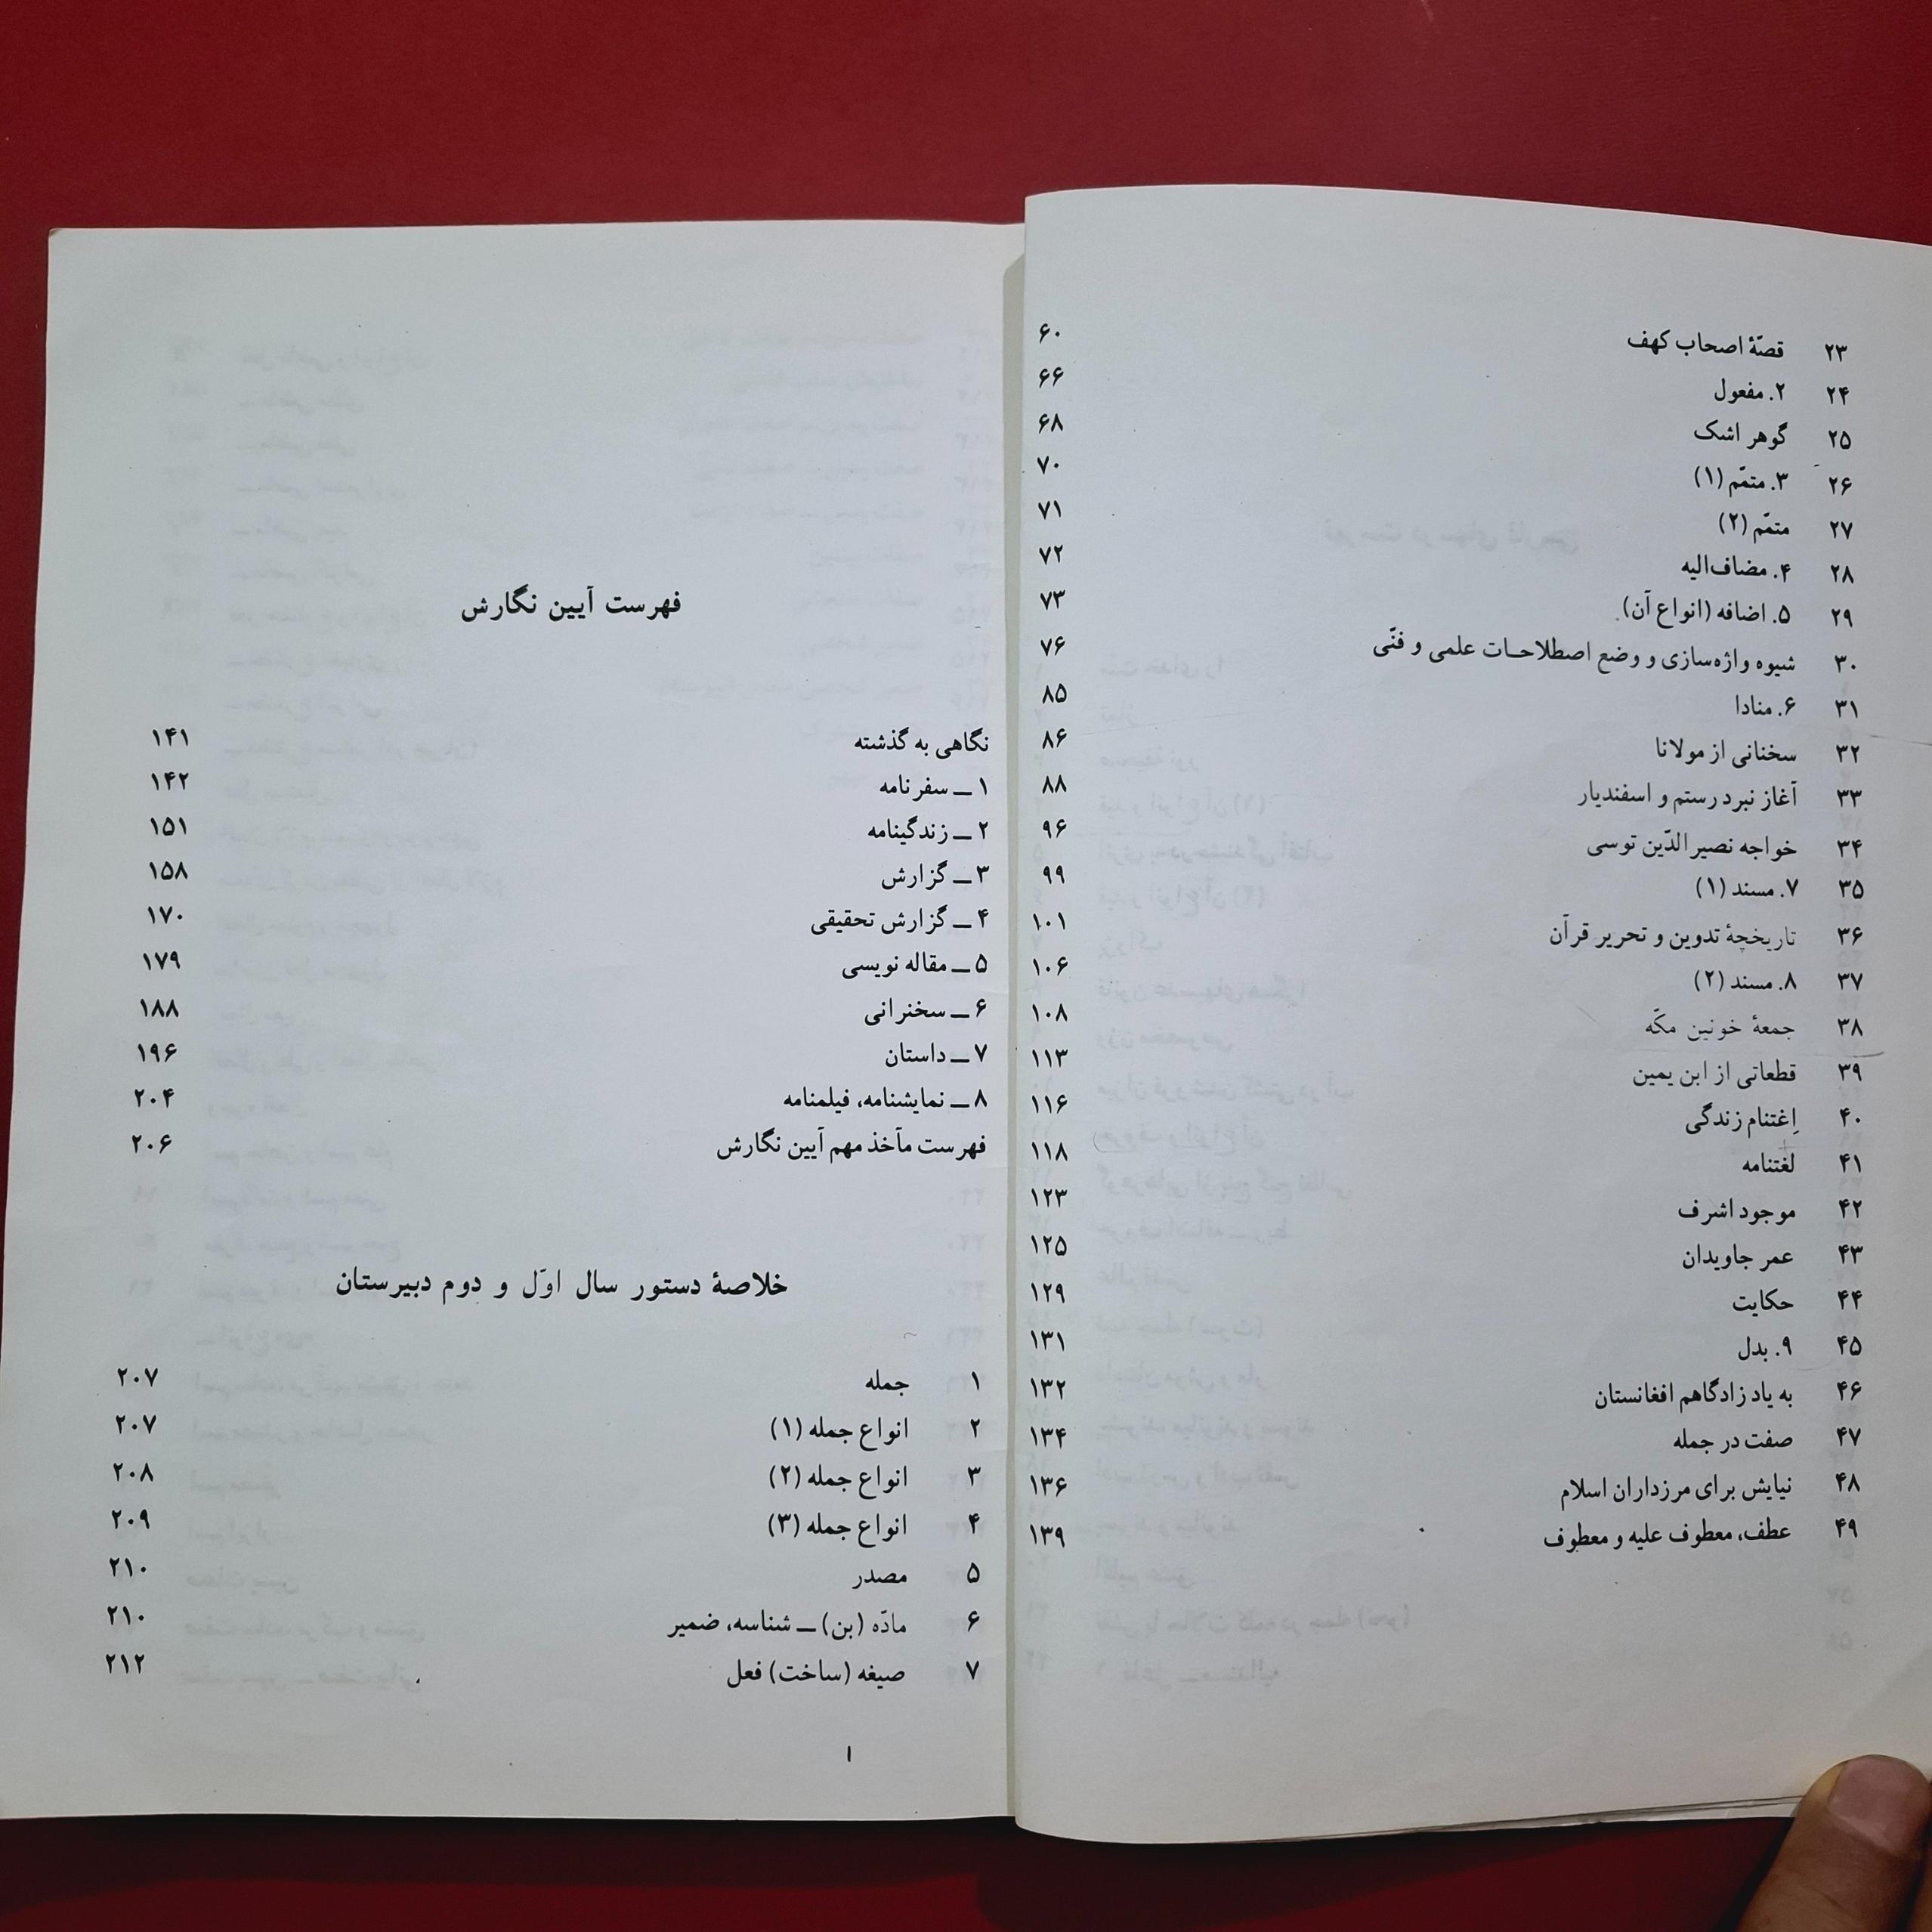 ۲۳ قصّهٔ اصحاب کهف ۶۰
۲۴ ۲. مفعول ۶۶
۲۵ گوهر اشک ۶۸
۲۶ ۳. متمّم (۱) ۷۰
۲۷ متمّم (۲) ۷۱
۲۸ ۴. مضاف‌الیه ۷۲
۲۹ ۵. اضافه (انواع آن) ۷۳
۳۰ شیوه واژه‌سازی و وضع اصطلاحـات علمی و فنّی ۷۶
۳۱ ۶. منادا ۸۵
۳۲ سخنانی از مولانا ۸۶
۳۳ آغاز نبرد رستم و اسفندیار ۸۸
۳۴ خواجه نصیرالدّین توسی ۹۶
۳۵ ۷. مسند (۱) ۹۹
۳۶ تاریخچهٔ تدوین و تحریر قرآن ۱۰۱
۳۷ ۸. مسند (۲) ۱۰۶
۳۸ جمعهٔ خونین مکّه ۱۰۸
۳۹ قطعاتی از ابن یمین ۱۱۳
۴۰ اِغتنام زندگی ۱۱۶
۴۱ لغتنامه ۱۱۸
۴۲ موجود اشرف ۱۲۳
۴۳ عمر جاویدان ۱۲۵
۴۴ حکایت ۱۲۹
۴۵ ۹. بدل ۱۳۱
۴۶ به یاد زادگاهم افغانستان ۱۳۲
۴۷ صفت در جمله ۱۳۴
۴۸ نیایش برای مرزداران اسلام ۱۳۶
۴۹ عطف، معطوف علیه و معطوف ۱۳۹
فهرست آیین نگارش
نگاهی به گذشته ۱۴۱
۱ ــ سفرنامه ۱۴۲
۲ ــ زندگینامه ۱۵۱
۳ ــ گزارش ۱۵۸
۴ ــ گزارش تحقیقی ۱۷۰
۵ ــ مقاله نویسی ۱۷۹
۶ ــ سخنرانی ۱۸۸
۷ ــ داستان ۱۹۶
۸ ــ نمایشنامه، فیلمنامه ۲۰۴
فهرست مآخذ مهم آیین نگارش ۲۰۶
خلاصهٔ دستور سال اوّل و دوم دبیرستان
۱ جمله ۲۰۷
۲ انواع جمله (۱) ۲۰۷
۳ انواع جمله (۲) ۲۰۸
۴ انواع جمله (۳) ۲۰۹
۵ مصدر ۲۱۰
۶ مادّه (بن) ــ شناسه، ضمیر ۲۱۰
۷ صیغه (ساخت) فعل ۲۱۲
ا